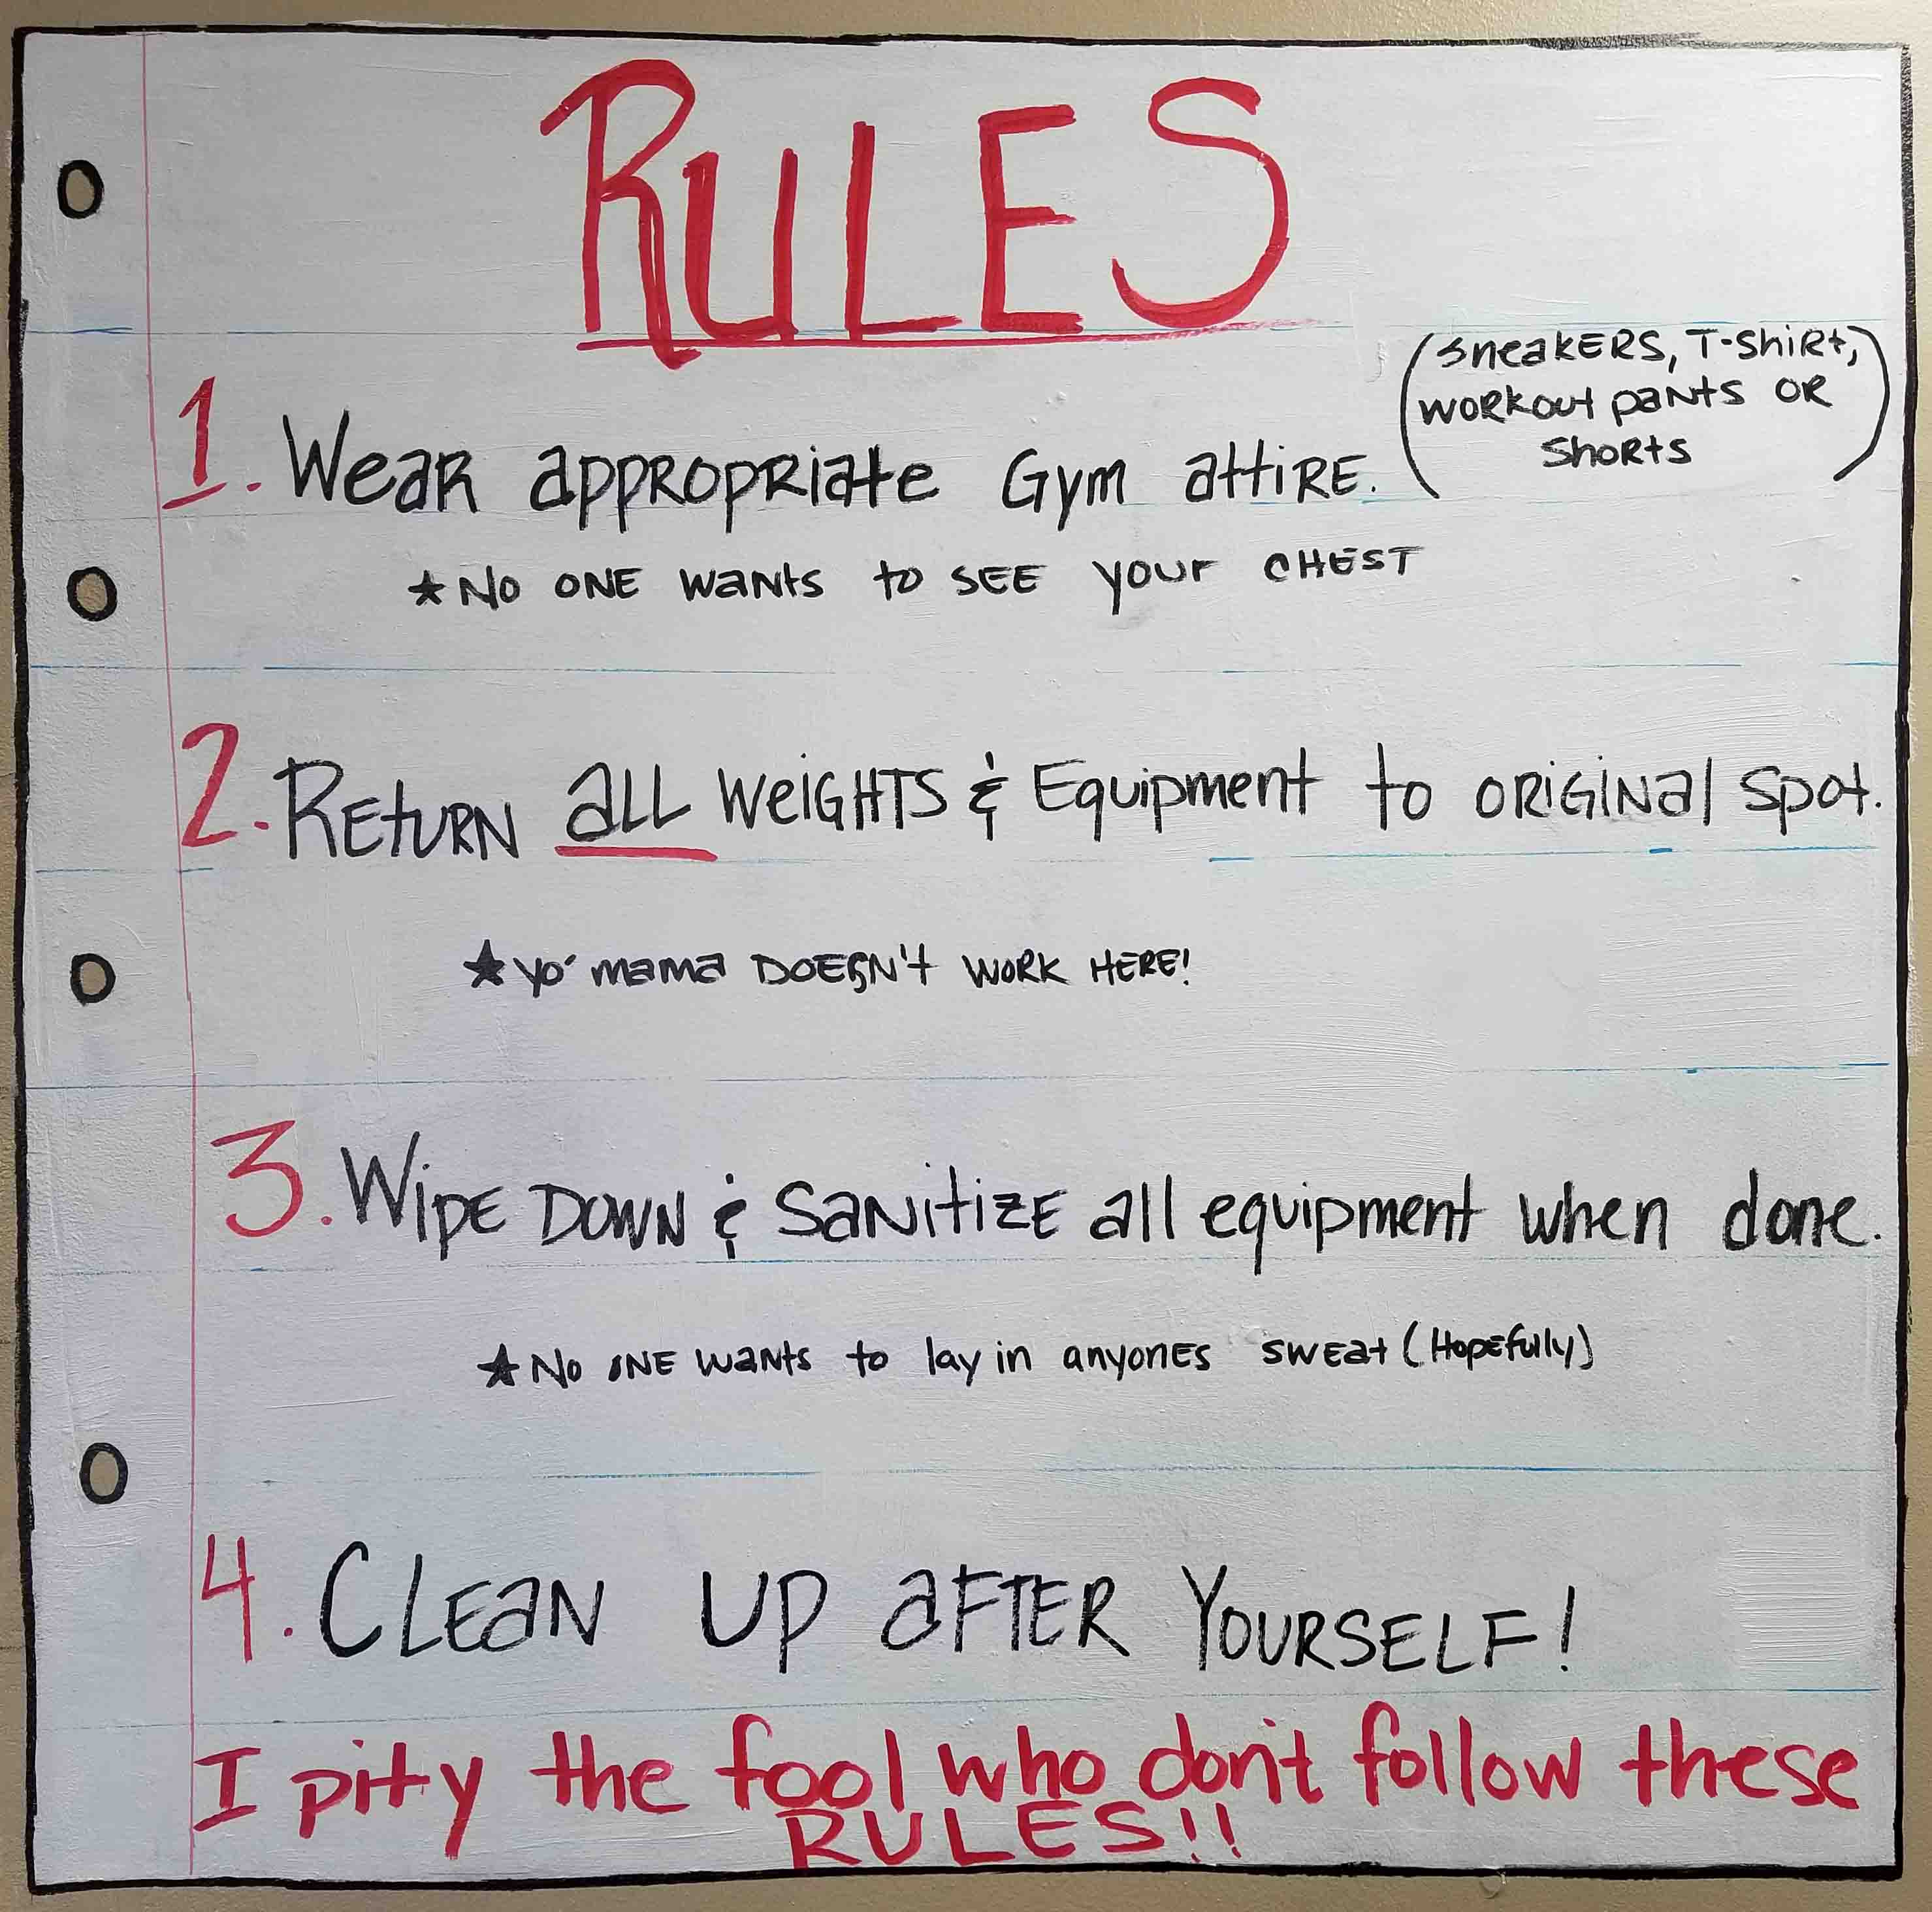 RULES
(sneakERS, T-ShiRt,
workout paNtS OR
ShoRtS)
1. Wear appROpRiate Gym attiRE.
★ No ONE waNtS to SEE your CHEST
2. REtURN aLL WeiGHTS & Equipment to ORiGiNal Spot.
★ yo' mama DOESN't WORK HERE!
3. WipE DOWN & SaNitizE all equipment when done.
★ No ONE waNtS to lay in anyonES swEat (HopEfully)
4. CLEaN UP aFTER YOURSELF!
I pity the fool who don't follow these
RULES!!